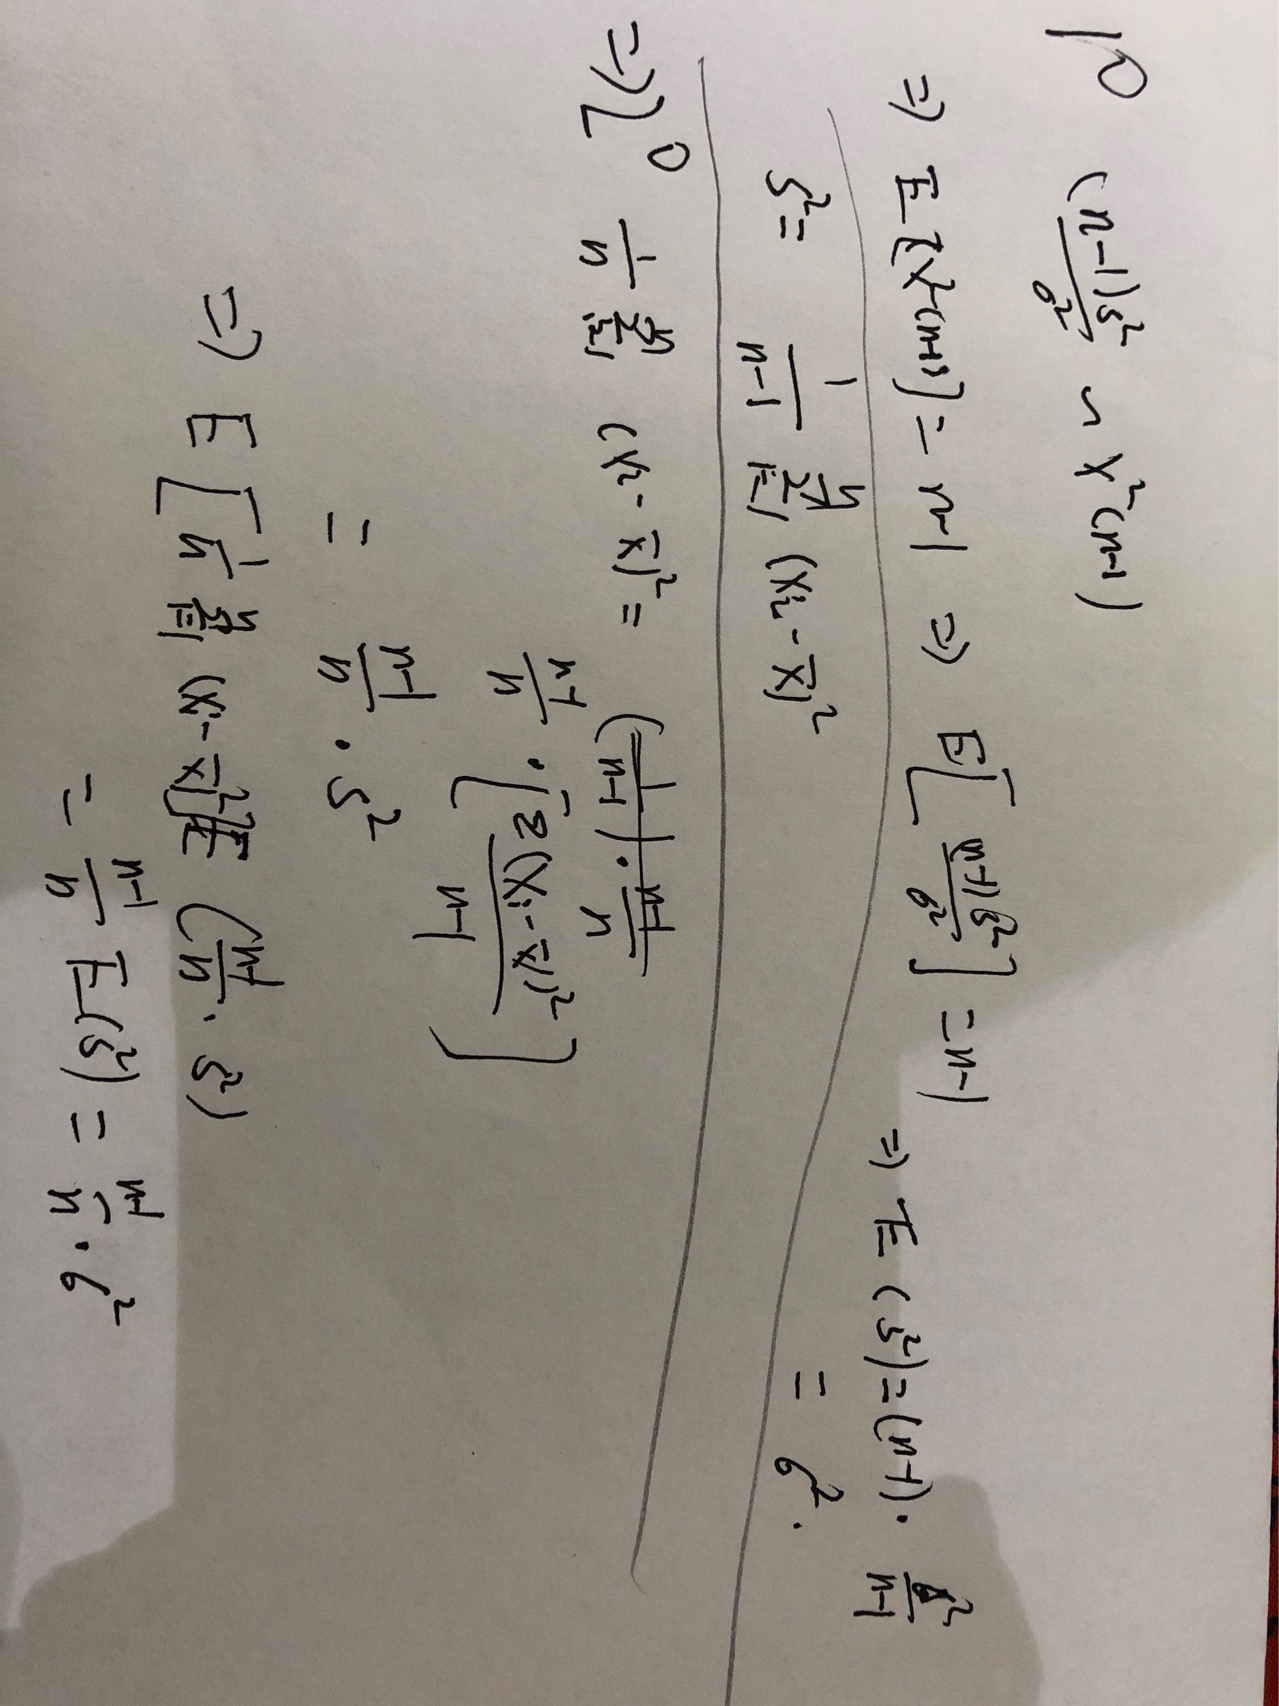 1° (n-1)S²/σ² ~ χ²(n-1)
⇒ E[χ²(n-1)] = n-1 ⇒ E[(n-1)S²/σ²] = n-1 ⇒ E(S²) = (n-1)·σ²/(n-1)
= σ².
S² = 1/(n-1) Σᵢ₌₁ⁿ (Xᵢ - X̄)²
⇒ 2° 1/n Σᵢ₌₁ⁿ (Xᵢ - X̄)² = (1/(n-1))·(n-1)/n
(n-1)/n · [Σ(Xᵢ - X̄)²/(n-1)]
= (n-1)/n · S²
⇒ E[1/n Σᵢ₌₁ⁿ (Xᵢ - X̄)²] = E((n-1)/n · S²)
= (n-1)/n E(S²) = (n-1)/n · σ²